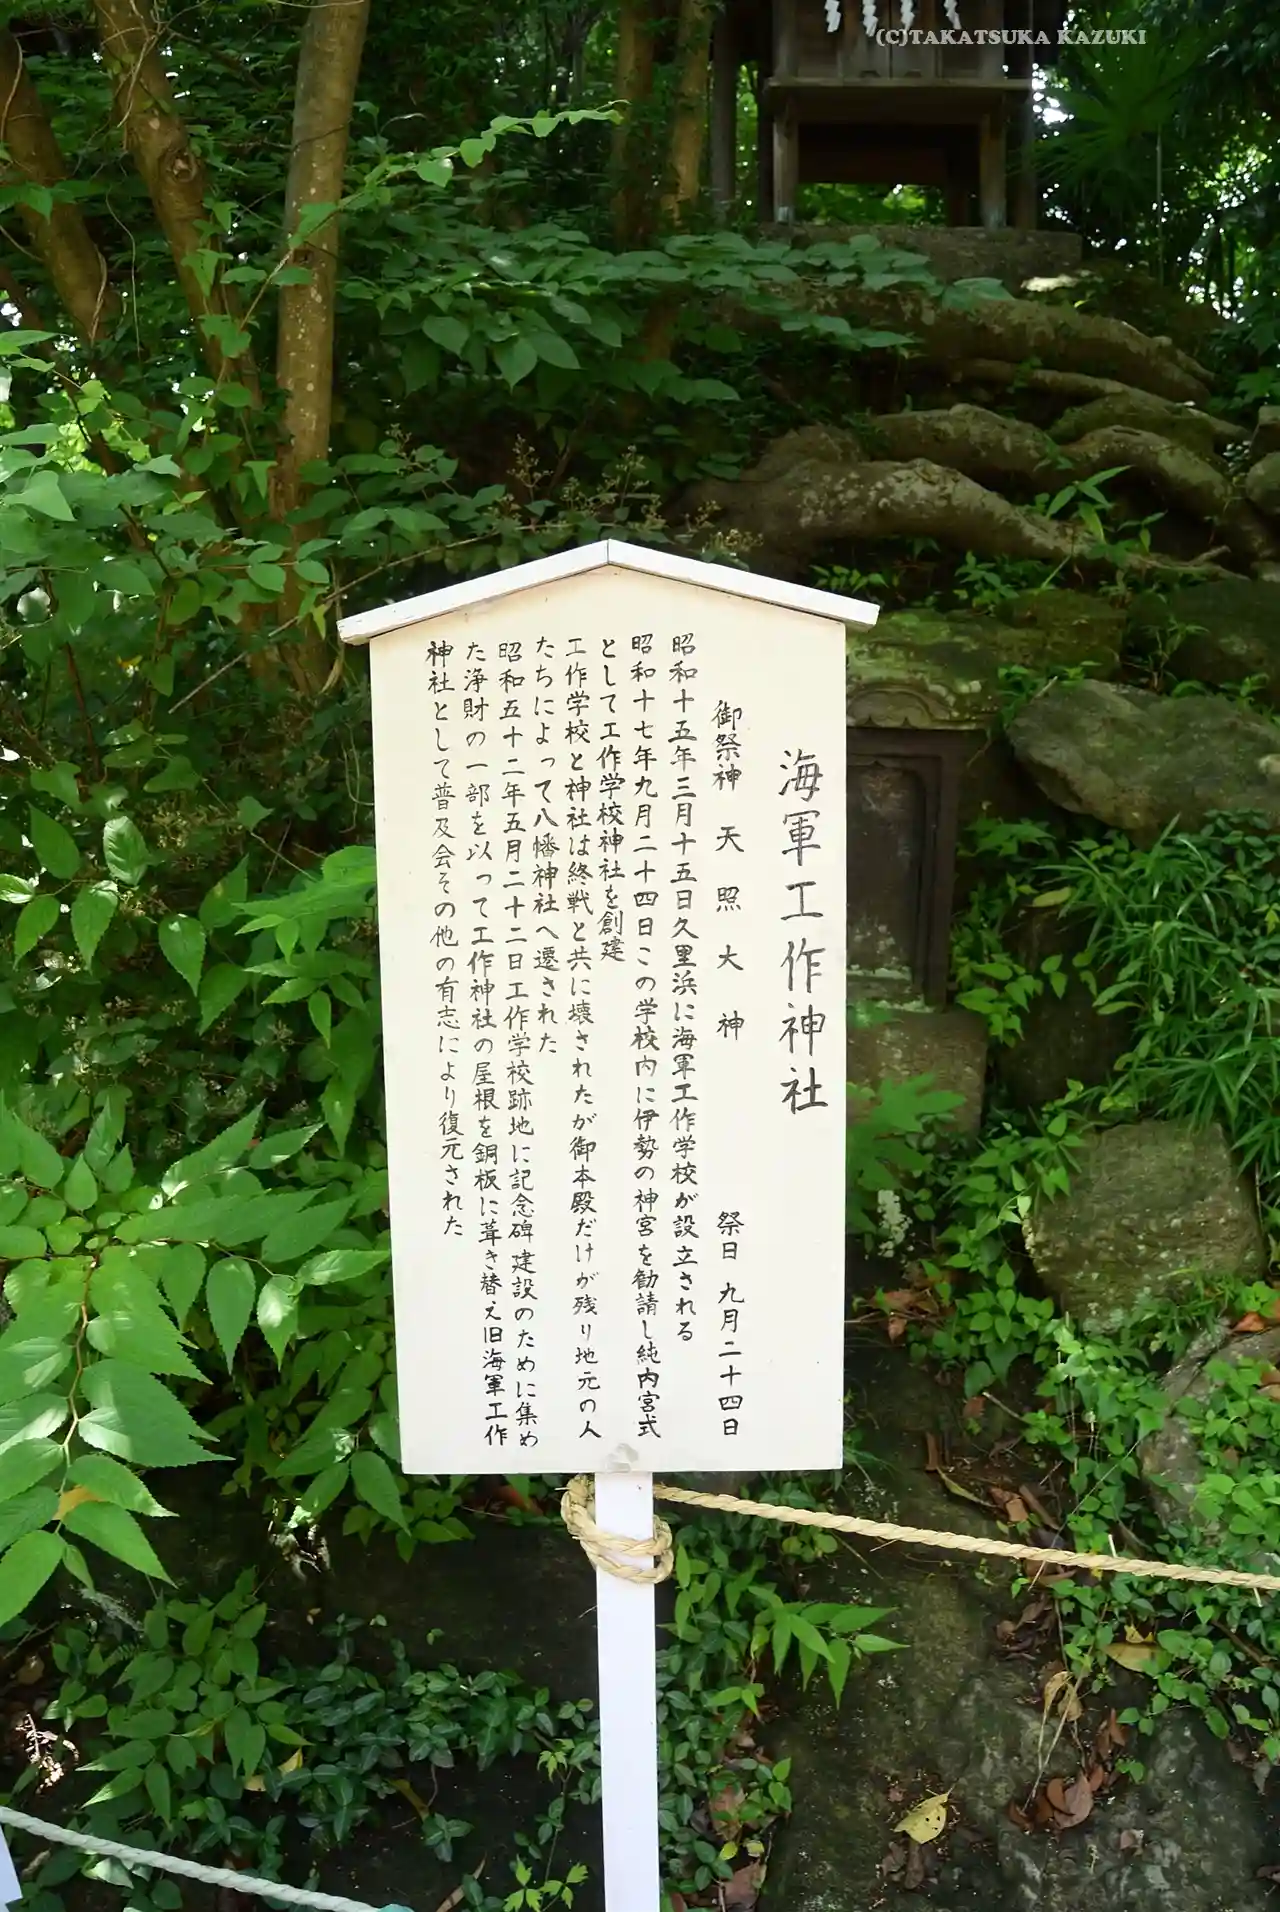 (C)TAKATSUKA KAZUKI
海軍工作神社
御祭神 天照大神 祭日 九月二十四日
昭和十五年三月十五日久里浜に海軍工作学校が設立される
昭和十七年九月二十四日この学校内に伊勢の神宮を勧請し純内宮式
として工作学校神社を創建
工作学校と神社は終戦と共に壊されたが御本殿だけが残り地元の人
たちによって八幡神社へ遷された
昭和五十二年五月二十二日工作学校跡地に記念碑建設のために集め
た浄財の一部を以って工作神社の屋根を銅板に葺き替え旧海軍工作
神社として普及会その他の有志により復元された